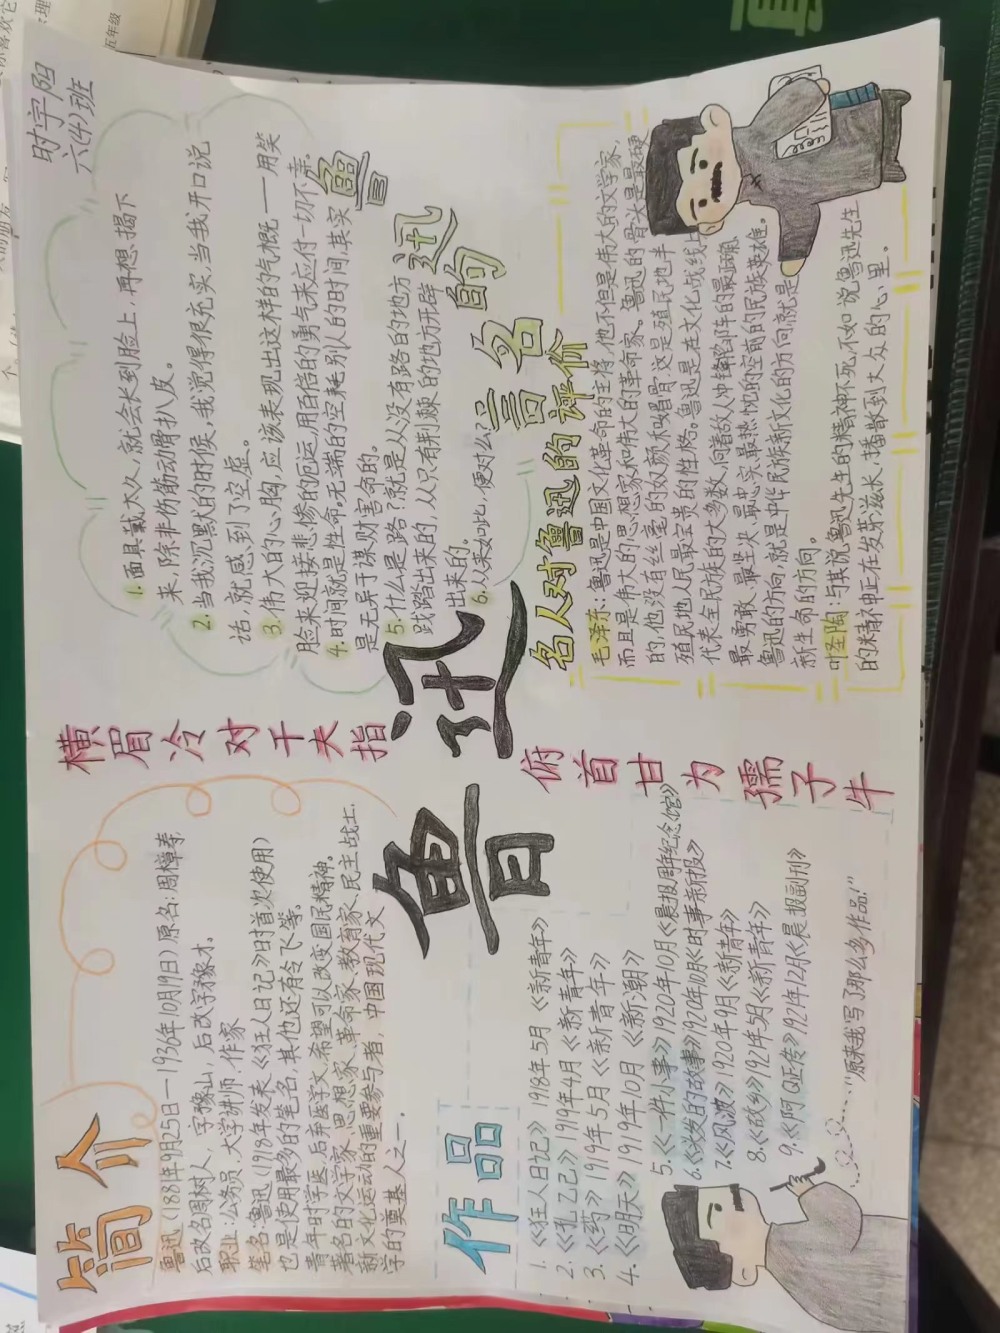 时宇阳
六(4)班
鲁迅
横眉冷对千夫指
俯首甘为孺子牛
简介
鲁迅(1881年9月25日—1936年10月19日)原名:周樟寿,
后改名周树人,字豫山,后改字豫才。
职业:公务员、大学讲师、作家
笔名:鲁迅(1918年发表《狂人日记》时首次使用)
也是使用最多的笔名,其他还有令飞等。
青年时学医后弃医学文,希望可以改变国民精神。
著名的文学家、思想家、革命家、教育家、民主战士,
新文化运动的重要参与者,中国现代文
学的奠基人之一.
作品
1.《狂人日记》1918年5月《新青年》
2.《孔乙己》1919年4月《新青年》
3.《药》1919年5月《新青年》
4.《明天》1919年10月《新潮》
5.《一件小事》1920年10月《晨报周年纪念馆》
6.《头发的故事》1920年10月《时事新报》
7.《风波》1920年9月《新青年》
8.《故乡》1921年5月《新青年》
9.《阿Q正传》1921年12月《晨报副刊》
"原来我写了那么多作品!"
鲁迅的名言
1.面具戴太久,就会长到脸上,再想揭下
来,除非伤筋动骨扒皮。
2.当我沉默的时候,我觉得很充实,当我开口说
话,就感到了空虚。
3.伟大的心胸,应该表现出这样的气概——用笑
脸来迎接悲惨的厄运,用百倍的勇气来应付一切不幸。
4.时间就是性命,无端的空耗别人的时间,其实
是无异于谋财害命的。
5.什么是路?就是从没有路的地方
践踏出来的,从只有荆棘的地方开辟
出来的。
6.从来如此,便对么?
名人对鲁迅的评价
毛泽东:鲁迅是中国文化革命的主将,他不但是伟大的文学家,
而且是伟大的思想家和伟大的革命家。鲁迅的骨头是最硬
的,他没有丝毫的奴颜和媚骨,这是殖民地半
殖民地人民最宝贵的性格。鲁迅是在文化战线上
代表全民族的大多数,向着敌人冲锋陷阵的最正确
最勇敢、最坚决、最忠实、最热忱的空前的民族英雄。
鲁迅的方向,就是中华民族新文化的方向,就是
新生命的方向。
叶圣陶:与其说鲁迅先生的精神不死,不如说鲁迅先生
的精神正在发芽滋长,播散到大众的心里。
五年级